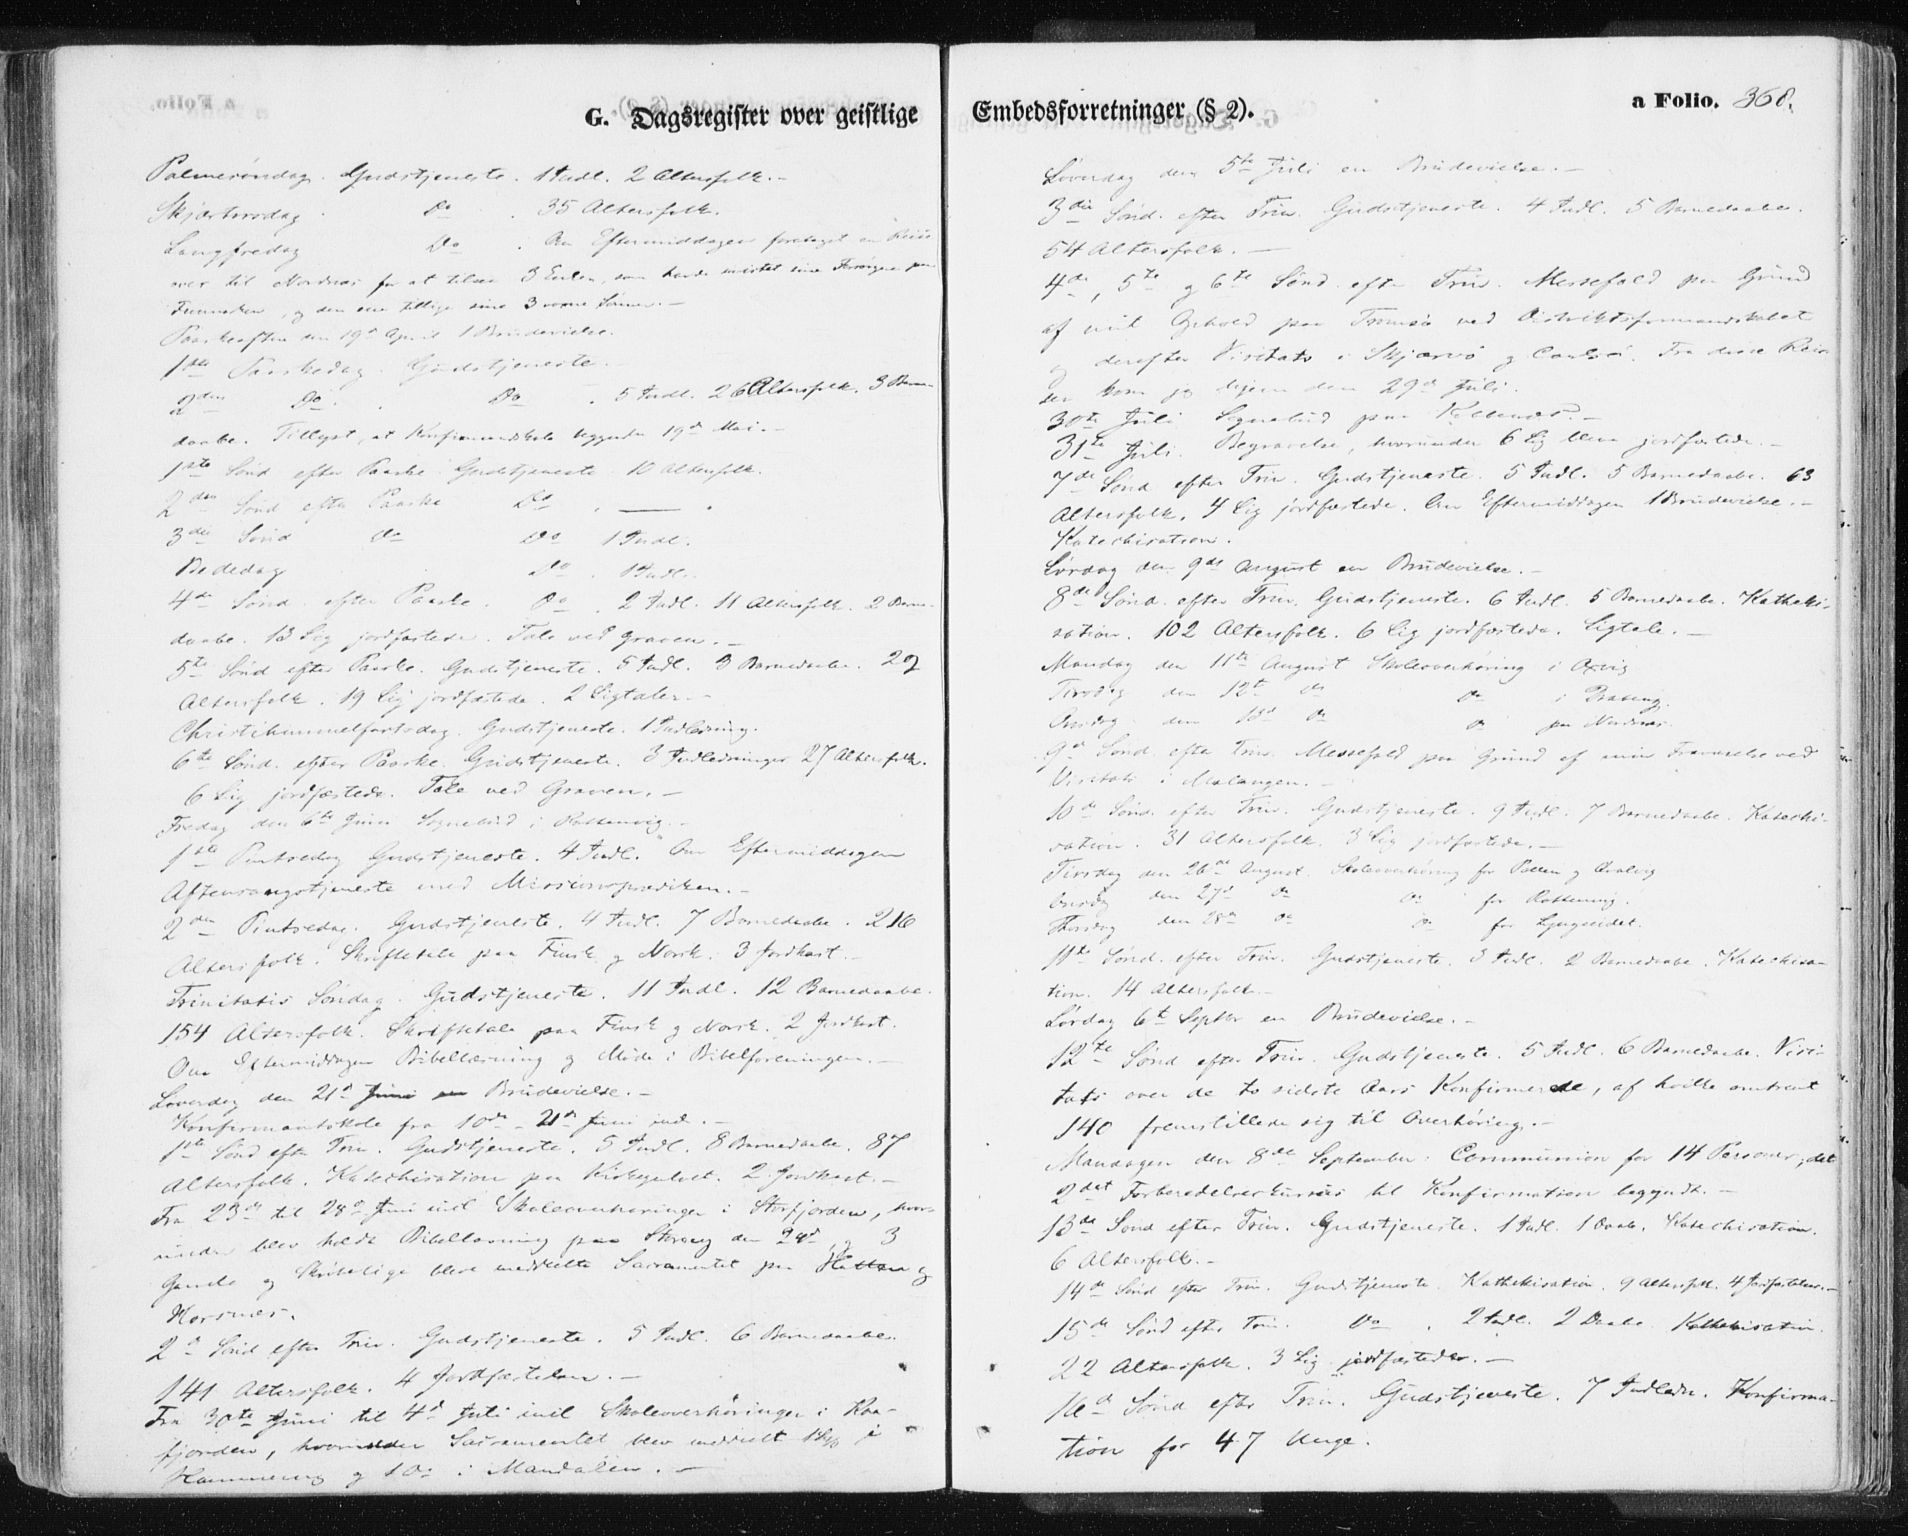 G. Dagsregister over geistlige
Palmesøndag. Gudstjeneste. 1 Indl. 2 Altersfolk. -
Skjærtorsdag. Do. 35 Altersfolk.
Langfredag Do. Om Eftermiddagen foretaget en Reise
over til Nordnæs for at tilsee 3 Enker, som havde mistet sine Forsørgere paa
Finmarken, og den ene tillige sine 3 voxne Sønner. -
Paaskeaften den 19de April 1 Brudevielse.
1ste Paaskedag. Gudstjeneste.
2den Do. Do. 5 Indl. 26 Altersfolk. 3 Barne-
daabe. Tillyst, at Konfirmandskole begynder 19de Mai. -
1ste Sønd efter Paaske Gudstjeneste 10 Altersfolk.
2den Sønd efter Paaske Do. —.
3die Sønd Do Do 1 Indl.
Bededag Do. 1 Indl.
4de Sønd. efter Paaske. Do. 2 Indl. 11 Altersfolk. 2 Barne-
daabe. 13 Lig jordfæstede. Tale ved Graven. -
5te Sønd efter Paaske. Gudstjeneste. 5 Indl. 3 Barnedaabe. 29
Altersfolk. 19 Lig jordfæstede. 2 Ligtaler. -
Christihimmelfartsdag. Gudstjeneste. 1 Indledning.
6te Sønd. efter Paaske. Gudstjeneste. 3 Indledninger 27 Altersfolk.
6 Lig jordfæstede. Tale ved Graven. -
Fredag den 6te Juni Sognebud i Rottenvig. -
1ste Pintsedag Gudstjeneste. 4 Indl. Om Eftermiddagen
Aftensangstjeneste med Missionsprædiken. -
2den Pintsedag. Gudstjeneste. 4 Indl. 7 Barnedaabe. 216
Altersfolk. Skriftetale paa Finsk og Norsk. 3 Jordkast. -
Trinitatis Søndag. Gudstjeneste. 11 Indl. 12 Barnedaabe.
154 Altersfolk. Skriftetale paa Finsk og Norsk. 2 Jordkast.
Om Eftermiddagen Bibellæsning og Møde i Bibelforeningen. -
Løverdag den 21de Juni en Brudevielse. -
Konfirmantskole fra 10de - 21de Juni incl. -
1ste Sønd efter Trin. Gudstjeneste. 5 Indl. 8 Barnedaabe. 87
Altersfolk. Katechisation paa Kirkegulvet. 2 Jordkast. -
Fra 23de til 28de Juni incl Skoleoverhøringer i Storfjorden, hvor-
under blev holdt Bibellæsning paa Storeng den 24de, og 3
Gamle og Skrøbelige bleve meddelte Sacramentet paa Hatten og
Horsnes.
2den Sønd efter Trin. Gudstjeneste. 5 Indl. 6 Barnedaabe.
141 Altersfolk. 4 Jordfæstelser. -
Fra 30te Juni til 4de Juli incl Skoleoverhøringer i Kaa-
fjorden, hvorunder Sacramentet blev meddelt 1 Syg i
og 1 Do i Mandalen. -
Embedsforretninger (§ 2).
a Folio. 368.
Løverdag den 5te Juli en Brudevielse. -
3die Sønd. efter Trin. Gudstjeneste. 4 Indl. 5 Barnedaabe.
54 Altersfolk. -
4de, 5te og 6te Sønd. efter Trin. Messefald paa Grund
af mit Ophold paa Tromsø ved Distriktsformandskabet
og derefter Visitats i Skjærvø og Carlsø. Fra disse Rei-
ser kom jeg hjem den 29de Juli.
30te Juli Sognebud paa -
31te Juli. Begravelse, hvorunder 6 Lig bleve jordfæstede. -
7de Sønd efter Trin. Gudstjeneste. 5 Indl. 5 Barnedaabe. 63
Altersfolk. 4 Lig jordfæstede. Om Eftermiddagen 1 Brudevielse. -
Katechisation.
Lørdag den 9de August en Brudevielse. -
8de Sønd. efter Trin. Gudstjeneste. 6 Indl. 5 Barnedaabe. Katheki-
sation. 102 Altersfolk. 6 Lig jordfæstede. Ligtale. -
Mandag den 11te August Skoleoverhøring i Oxvig
Tirsdag den 12te Do Do i
Onsdag den 13de Do Do paa Nordnæs.
9de Sønd. efter Trin. Messefald paa Grund af min Fraværelse ved
Visitats i Malangen. -
10de Sønd. efter Trin. Gudstjeneste. 9 Indl. 7 Barnedaabe. Katechi-
sation. 31 Altersfolk. 3 Lig jordfæstede. -
Tirsdag den 26de August. Skoleoverhøring for Pollen og
Onsdag den 27de Do Do for Rottenvig.
Thorsdag den 28de Do Do for Lyngseidet.
11te Sønd. efter Trin. Gudstjeneste. 3 Indl. 2 Barnedaabe. Katechisa-
tion. 14 Altersfolk. -
Lørdag 6te Septbr en Brudevielse. -
12te Sønd efter Trin. Gudstjeneste. 5 Indl. 6 Barnedaabe. Visi-
tats over de to sidste Aars Konfirmerede, af hvilke omtrent
140 fremstillede sig til Overhøring. -
Mandagen den 8de September. Communion for 14 Personer; det
2det Forberedelseskursus til Konfirmation begyndt. -
13de Sønd efter Trin. Gudstjeneste. 1 Indl. 1 Daab. Katechisation.
6 Altersfolk. -
14de Sønd efter Trin. Gudstjeneste. Kathekisation. 9 Altersfolk. 4 Jordfæstelser. -
15de Sønd efter Trin. Do. 2 Indl. 2 Daabe. Kathekisation.
22 Altersfolk. 3 Lig jordfæstede. -
16de Sønd efter Trin. Gudstjeneste. 7 Indledn. Konfirma-
tion for 47 Unge.